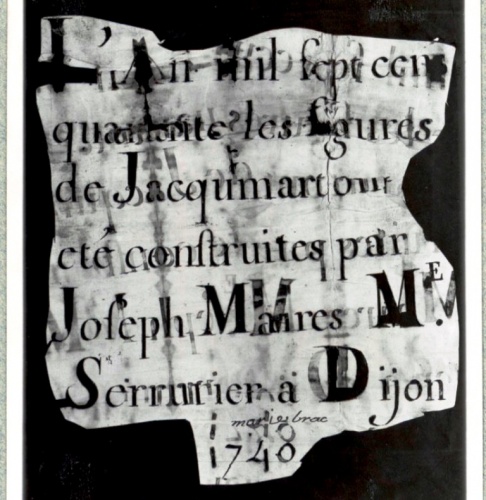 L'An mil sept cens
quarante les figures
de Jacqumart ont
eté construites par
Joseph Maires M.E
Serrurier a Dijon
1740